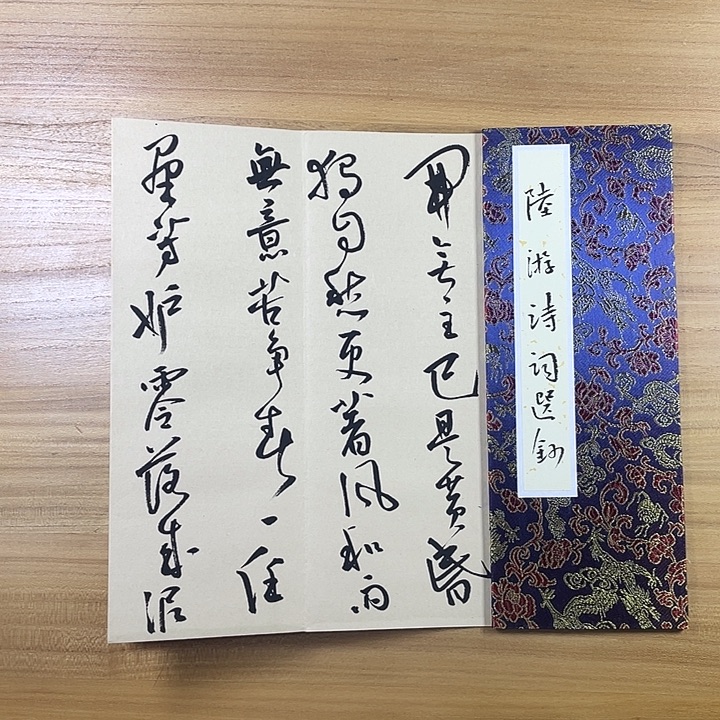 陸游詩詞選鈔
開无主已是黄昏
獨自愁更著風和雨
無意苦争春一任
羣芳妒零落成泥